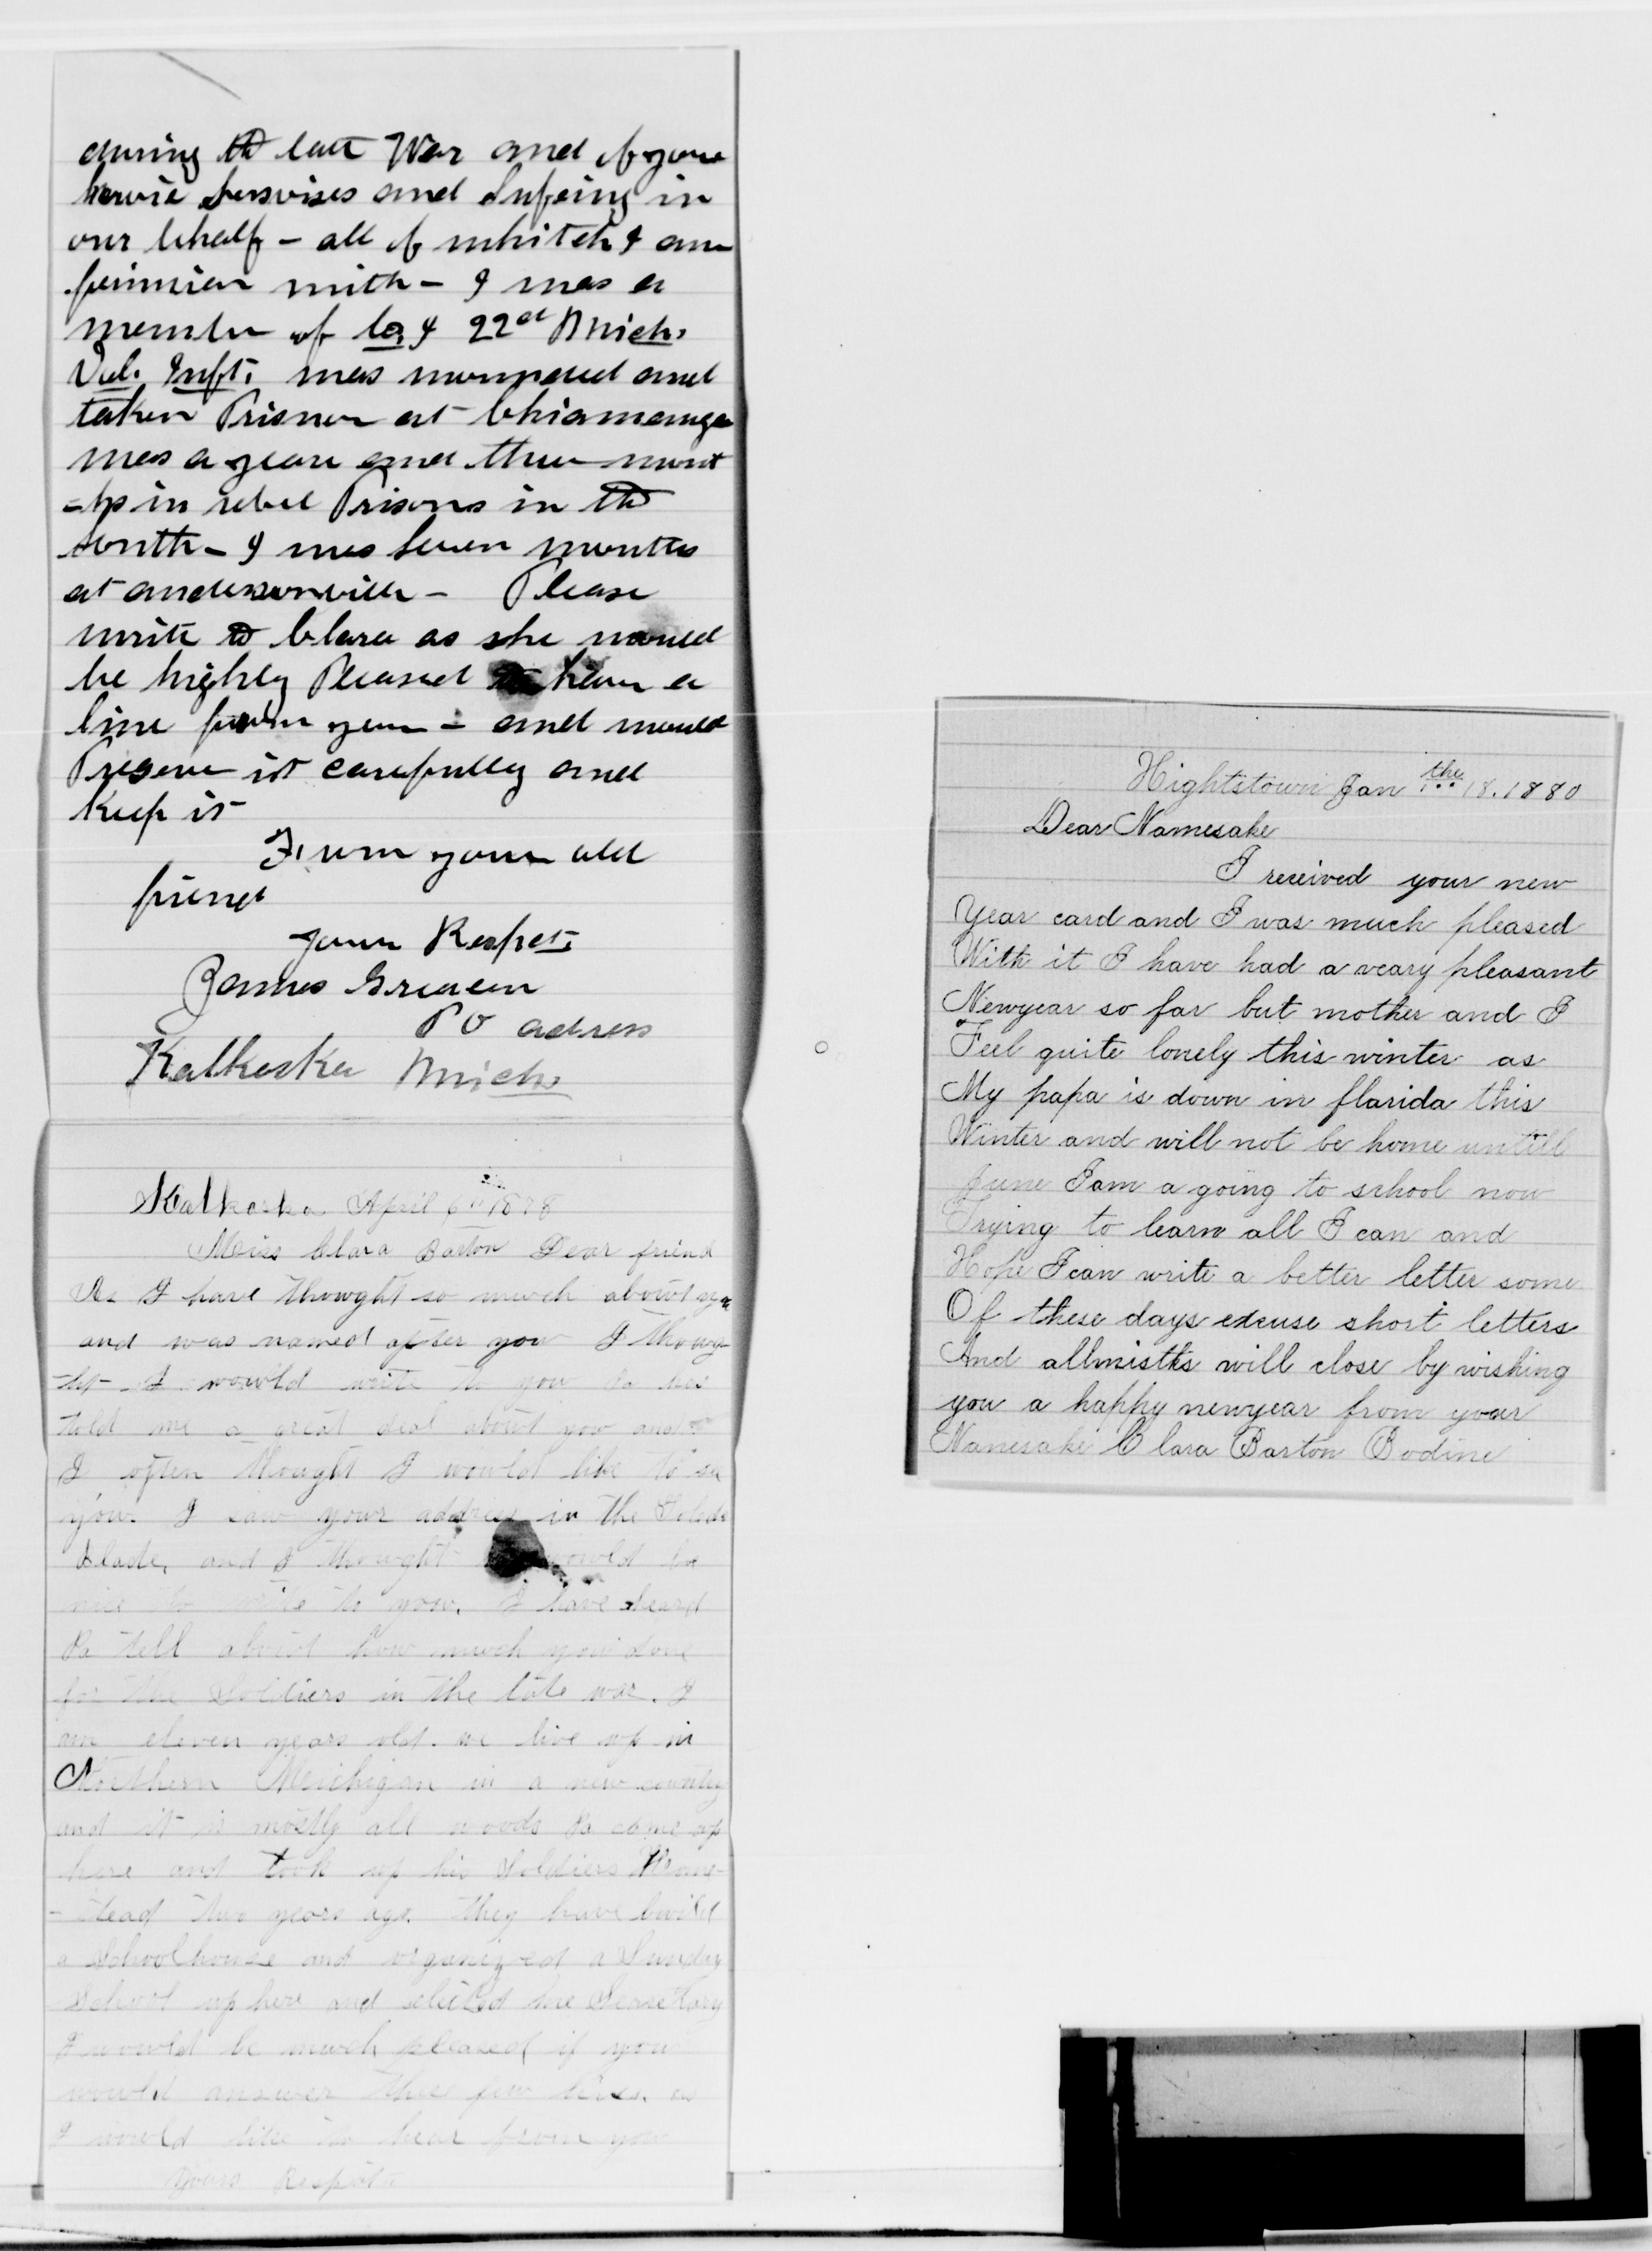 during the late War and of your
heroic servises and Sufeing in
our behalf - all of whitch I am
fermiear with - I was a
member of Co. I 22d Mich.
Vol. Inft. was wounded and
taken Prisner at Chicamauga
was a year and three mont
=hs in rebel Prisons in the
South - I was Seven months
at andersonville - Please
write to Clara as she would
be highly Pleased to have a
line from you - and would
Preserve it carefully and
Keep it
From your old
friend
your Respet.
James
P O adress
Kalkaska Mich
Kalkaska April 6th 1878
Miss Clara Barton Dear friend
As I have thowght so much abowt you
and was named after you I thowg
-ht I wowld write to you Pa has
told me a great deal abowt you and
I often thowght I wowld like to see
you. I saw your address in the Toledo
Blade, and I thowght wowld be
nice to write to you. I have heard
Pa tell abowt how much you done
for the Soldiers in the late war. I
am eleven years old. we live up in
Northern Meichigan in a new country
and it is mostly all woods Pa came up
here and took up his Soldiers Home-
-stead two years ago. they have build
a School house and organized a Sunday
School up here and elected me Secretary
I wowld be much pleased if you
wowld answer these few lines. as
I wowld like to hear from you
Yours Respet
Hightstown Jan the 18. 1880
Dear Namesake
I received your new
Year card and I was much pleased
With it I have had a veary pleasant
Newyear so far but mother and I
Feel quite lonely this winter as
My papa is down in flarida this
Winter and will not be home untill
June I am a going to school now
Trying to learn all I can and
Hope I can write a better letter some
Of these days excuse short letters
And allmistks will close by wishing
you a happy newyear from your
Namesake Clara Barton Bodine